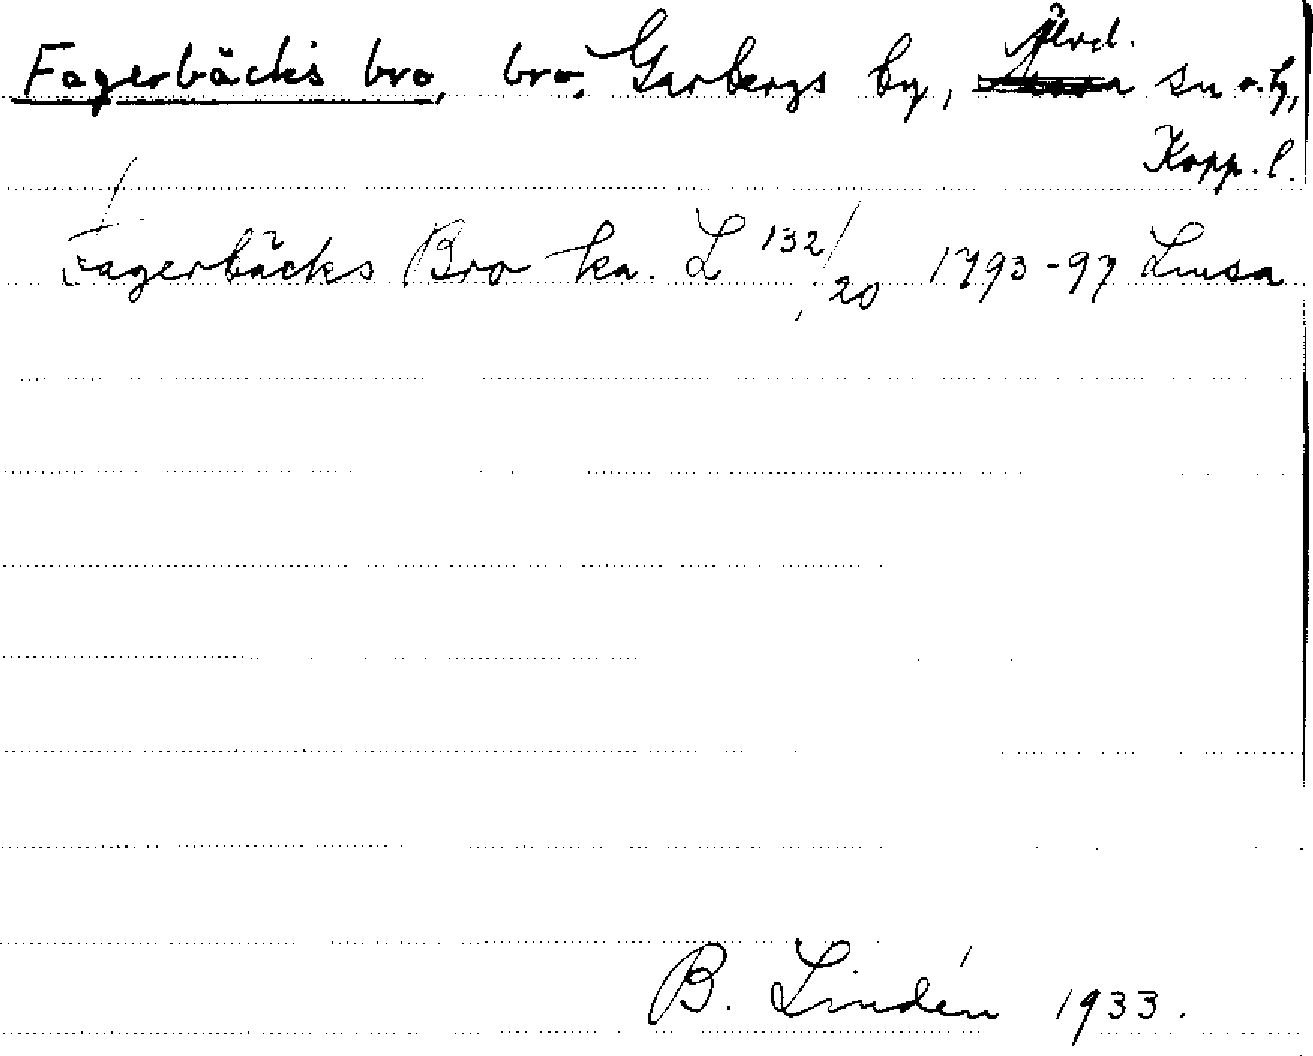 Fagerbäcks bro, bro, Garbergs by, Älvd. sn o. h,
Kopp. l.
Fagerbäcks Bro ka. L 132/20 1793-97 Lmsa
B. Lindén 1933.